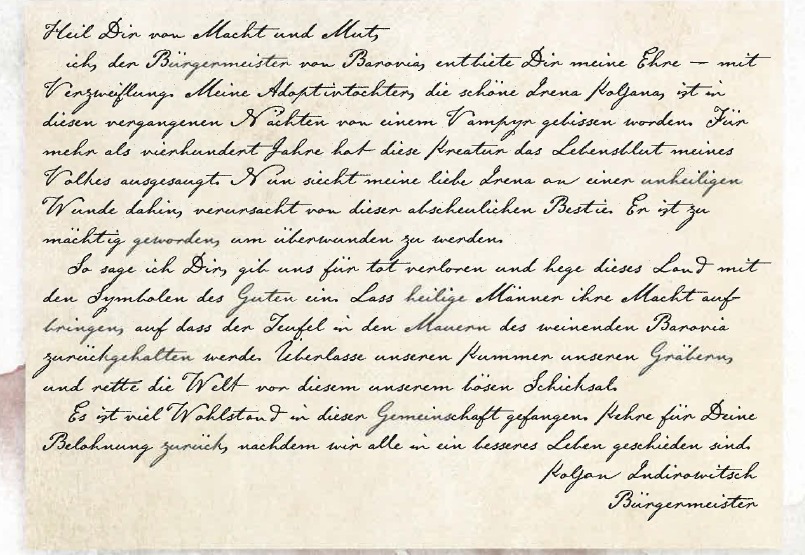 Heil Dir von Macht und Mut,
ich, der Bürgermeister von Barovia, entbiete Dir meine Ehre – mit
Verzweiflung. Meine Adoptivtochter, die schöne Irena Koljana, ist in
diesen vergangenen Nächten von einem Vampyr gebissen worden. Für
mehr als vierhundert Jahre hat diese Kreatur das Lebensblut meines
Volkes ausgesaugt. Nun siecht meine liebe Irena an einer unheiligen
Wunde dahin, verursacht von dieser abscheulichen Bestie. Er ist zu
mächtig geworden, um überwunden zu werden.
So sage ich Dir, gib uns für tot verloren und hege dieses Land mit
den Symbolen des Guten ein. Lass heilige Männer ihre Macht auf-
bringen, auf dass der Teufel in den Mauern des weinenden Barovia
zurückgehalten werde. Überlasse unseren Kummer unseren Gräbern,
und rette die Welt vor diesem unserem bösen Schicksal.
Es ist viel Wohlstand in dieser Gemeinschaft gefangen. Kehre für Deine
Belohnung zurück, nachdem wir alle in ein besseres Leben geschieden sind.
Koljan Indirowitsch
Bürgermeister